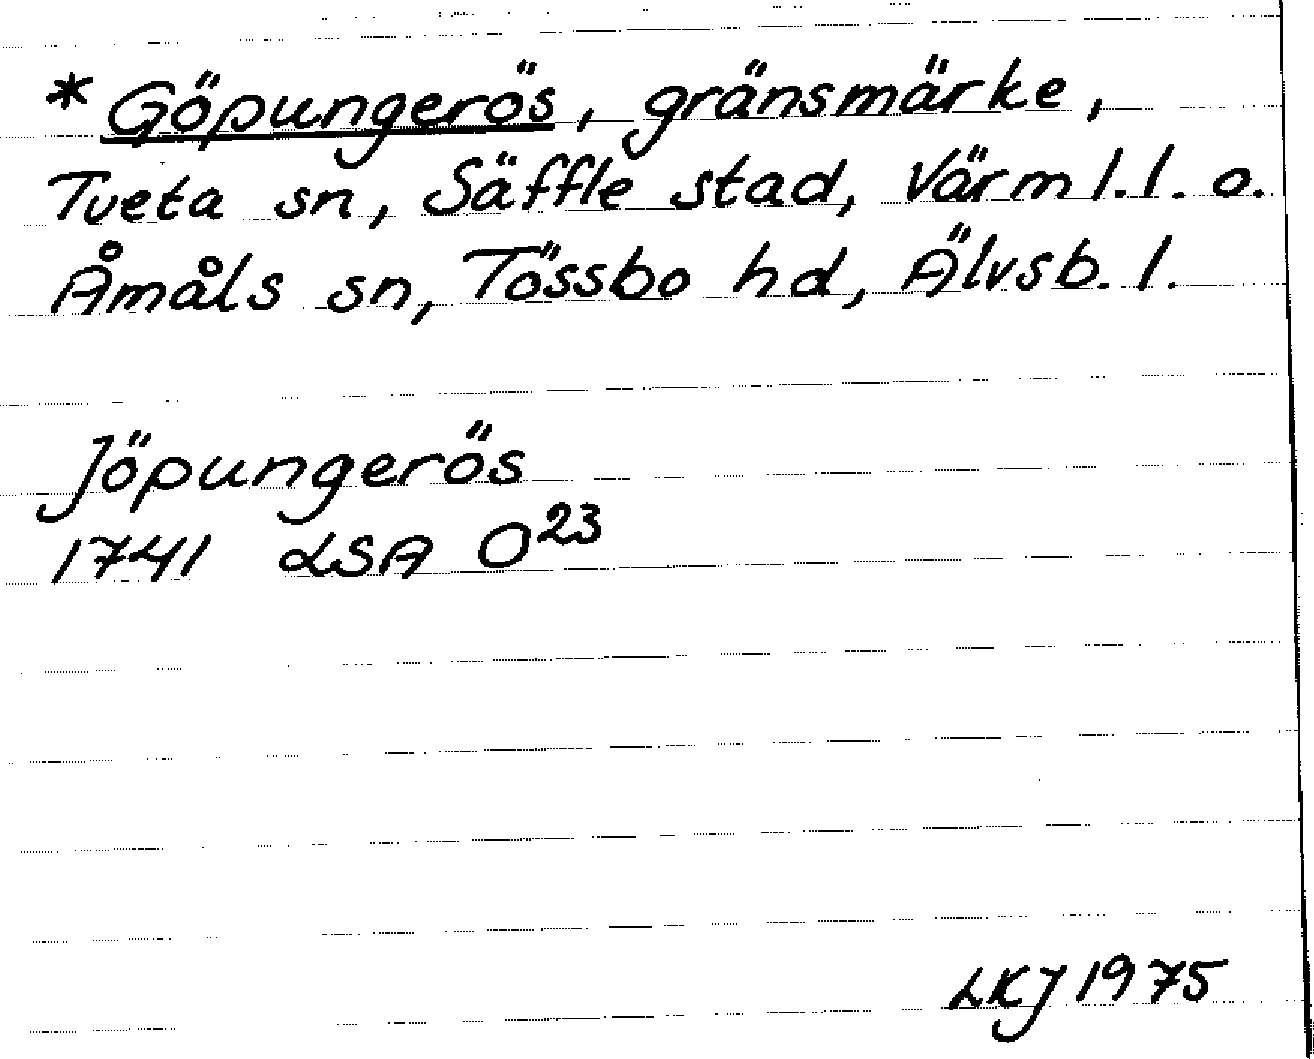 * Göpungerös, gränsmärke,
Tveta sn, Säffle stad, Värml.l. o.
Åmåls sn, Tössbo hd, Älvsb. l.
Jöpungerös
1741 LSA O23
LKJ 1975